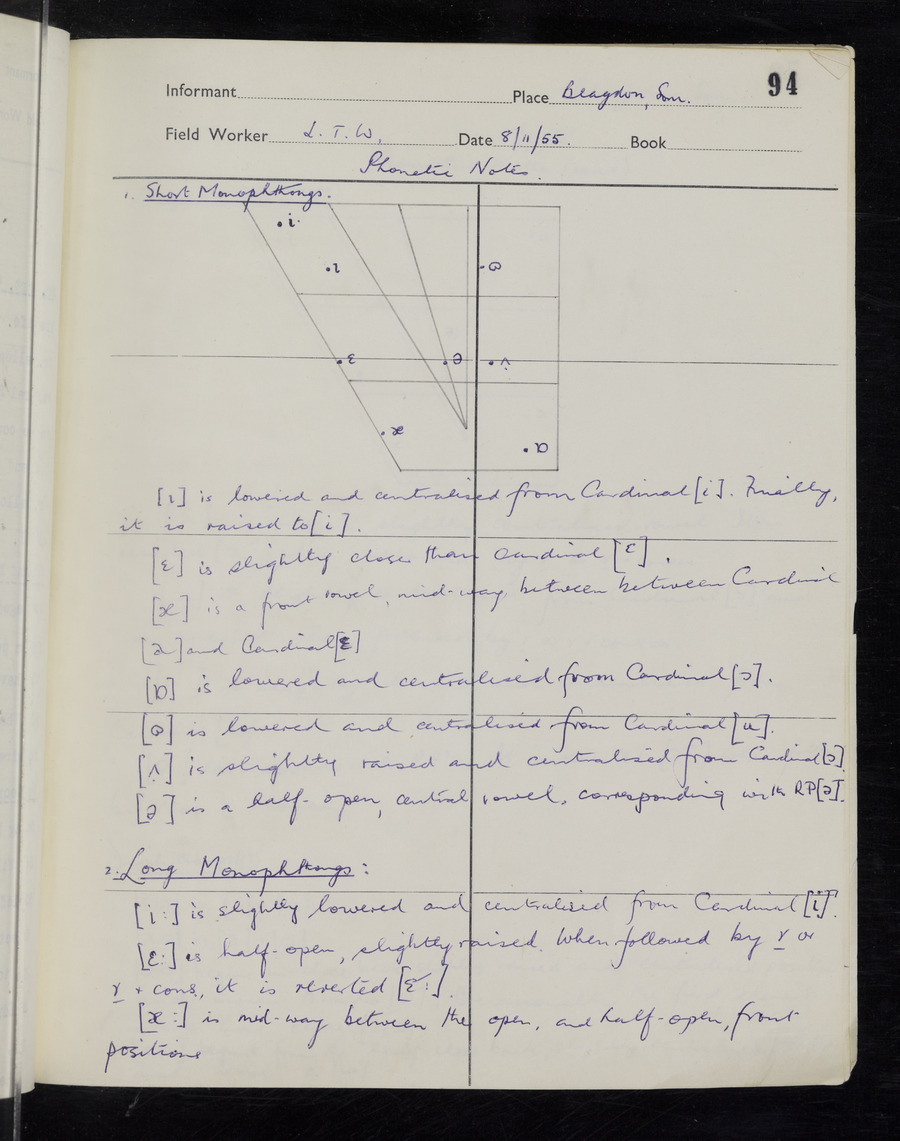 94
Informant Place Blagdon, Som.
Field Worker S. T. W. Date 8/11/55. Book
Phonetic Notes.
1. Short Monophthongs.
i
ɩ
ɷ
ɛ
ə
ʌ
æ
ɒ
[ɩ] is lowered and centralised from Cardinal [i]. Finally,
it is raised to [i].
[ɛ] is slightly closer than cardinal [ɛ].
[æ] is a front vowel, mid-way, between between Cardinal
[a] and Cardinal [ɛ]
[ɒ] is lowered and centralised from Cardinal [ɔ].
[ɷ] is lowered and centralised from Cardinal [u].
[ʌ] is slightly raised and centralised from Cardinal [ɔ]
[ə] is a half-open, central vowel, corresponding with RP [ə].
2. Long Monophthongs:
[i:] is slightly lowered and centralised from Cardinal [i].
[ɛ:] is half-open, slightly raised. When followed by r or
r + cons, it is reverted [ɛ̈:].
[æ:] is mid-way between the open, and half-open, front
positions